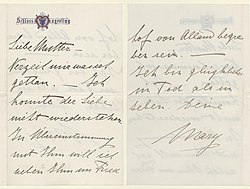 Schloss Mayerling
Liebe Mutter –
Verzeiht mir was ich
gethan. – Ich
konnte der Liebe
nicht wiederstehen
In Übereinstimmung
mit Ihm will ich
neben Ihm im Fried
hof von Alland begra
ben sein –
Ich bin glücklicher
im Tod als im
Leben. Deine
Mary